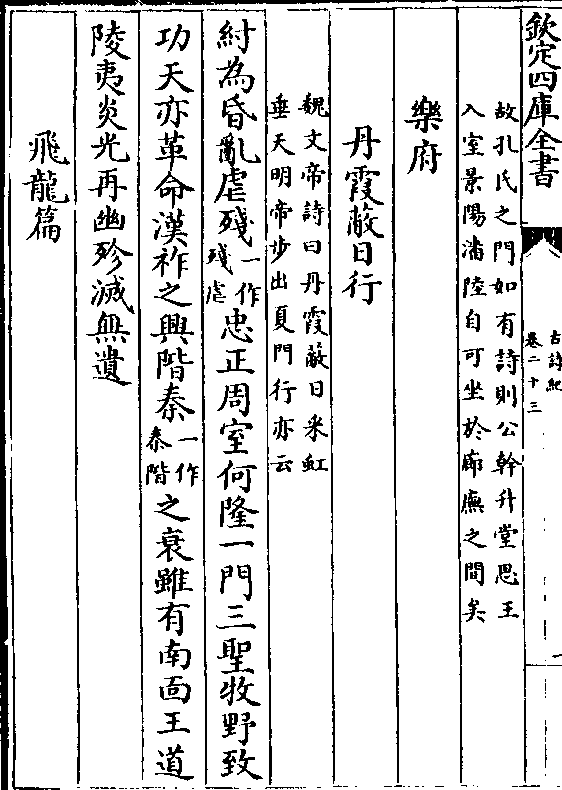 欽定四庫全書
古詩紀
卷二十三
一
故孔氏之門如有詩則公幹升堂思王
入室景陽潘陸自可坐於廊廡之間矣
樂府
丹霞蔽日行
魏文帝詩曰丹霞蔽日采虹
垂天明帝步出夏門行亦云
紂為昏亂虐殘一作殘虐忠正周室何隆一門三聖牧野致
功天亦革命漢祚之興階秦一作秦階之衰雖有南面王道
陵夷炎光再幽殄滅無遺
飛龍篇